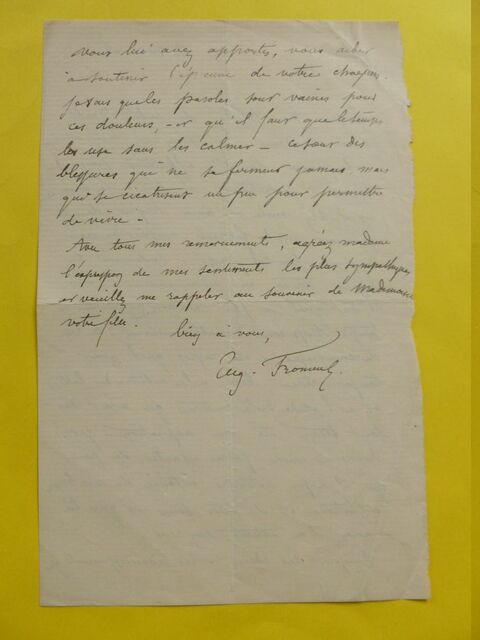 vous lui avez apportés, vous aider
à soutenir l'épreuve de votre chagrin
je sais que les paroles sont vaines pour
ces douleurs, - et qu'il faut que le temps
les use sans les calmer - ce sont des
blessures qui ne se ferment jamais, mais
qui se cicatrisent un peu pour permettre
de vivre -
Avec tous mes remerciements, agréez madame
l'expression de mes sentiments les plus sympathiques
et veuillez me rappeler au souvenir de Mademoiselle
votre fille.
bien à vous,
Eug. Froment.